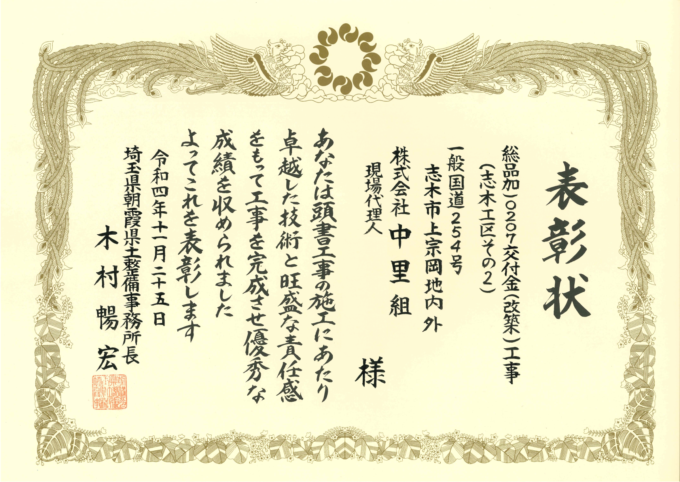 表彰状
総品加)0207交付金(改築)工事
(志木工区その2)
一般国道254号
志木市上宗岡地内外
株式会社 中里組
現場代理人
様
あなたは頭書工事の施工にあたり
卓越した技術と旺盛な責任感
をもって工事を完成させ優秀な
成績を収められました
よってこれを表彰します
令和四年十一月二十五日
埼玉県朝霞県土整備事務所長
木村暢宏